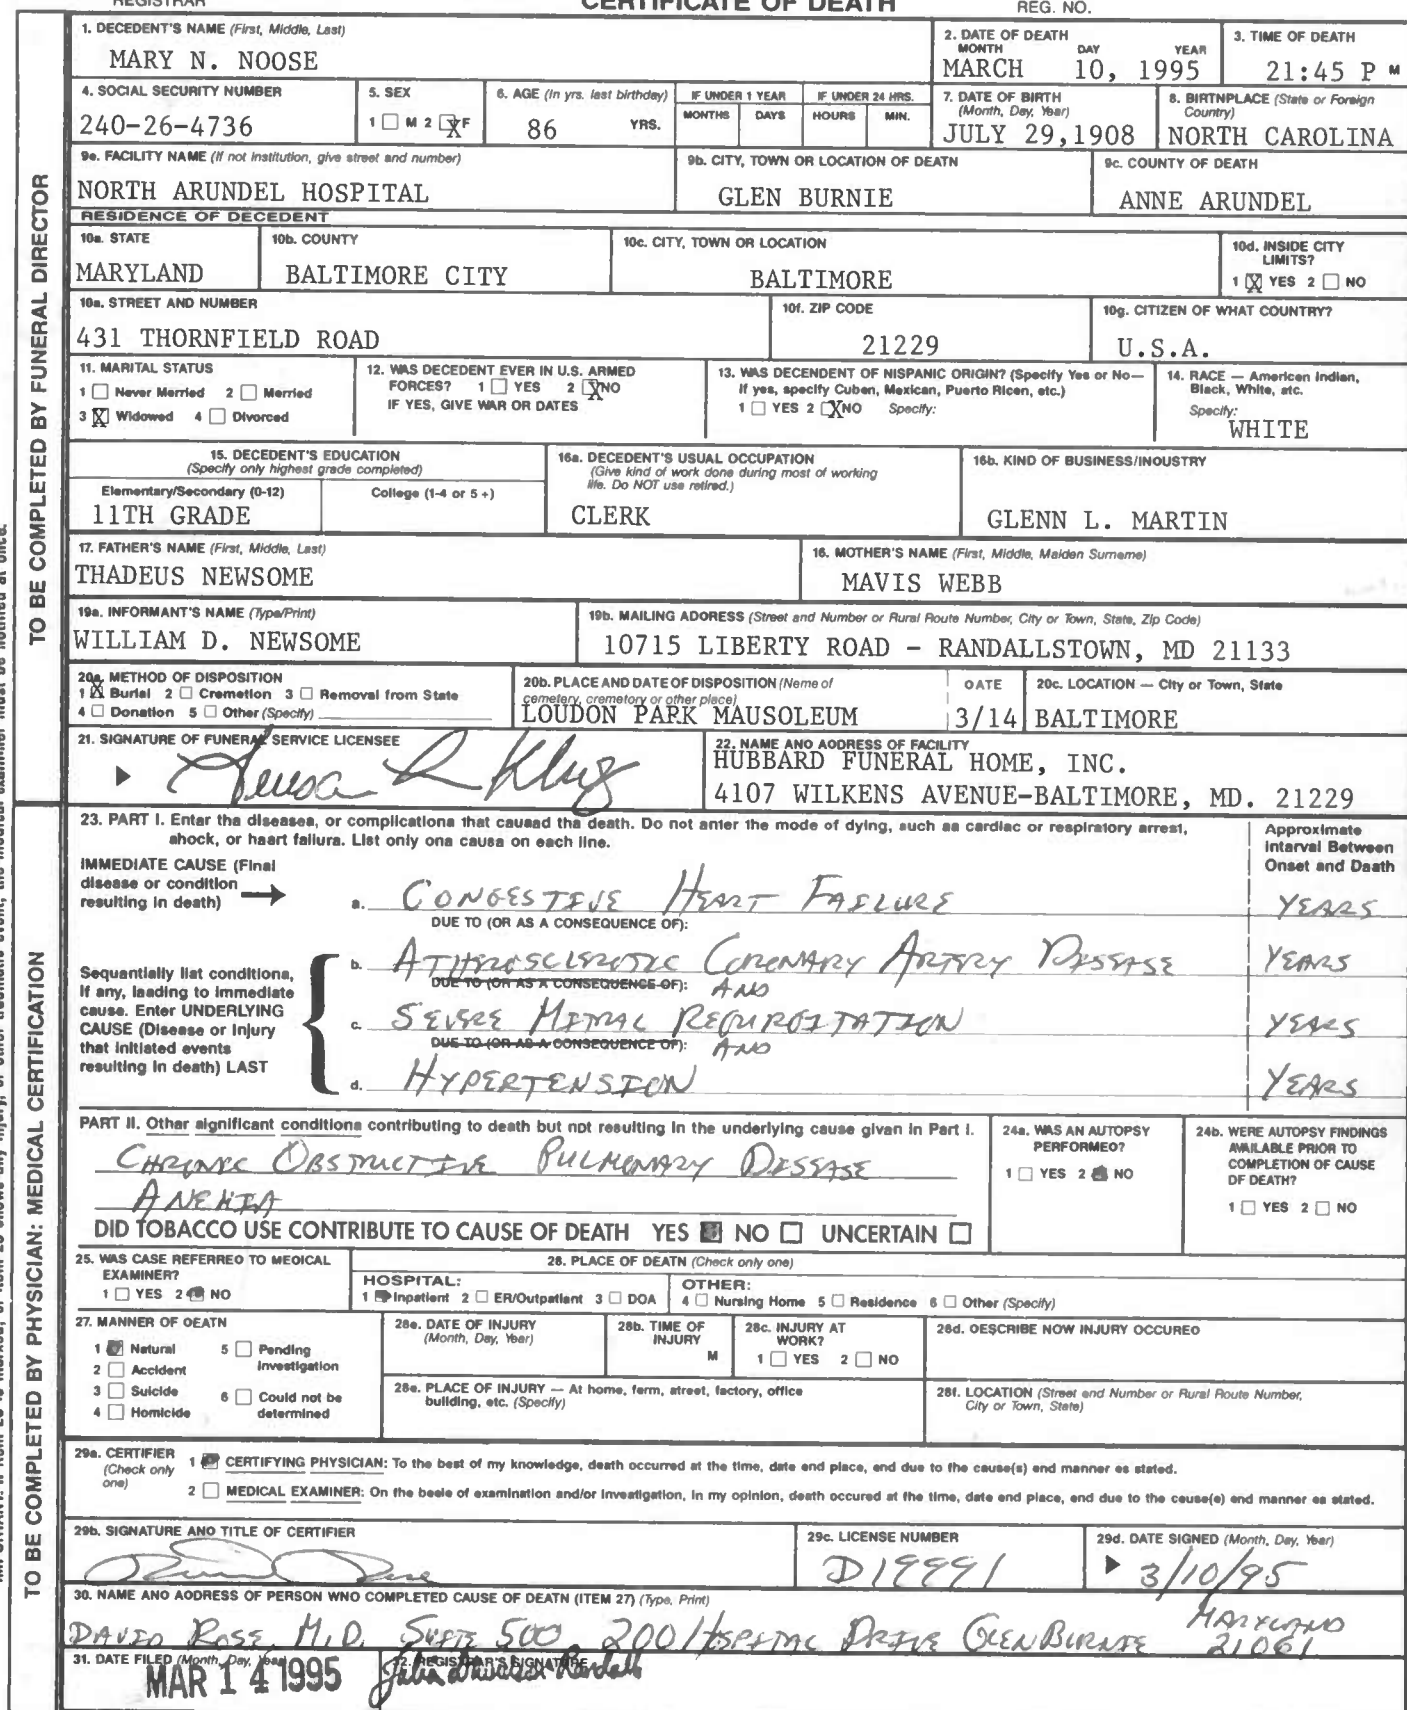 REGISTRAR CERTIFICATE OF DEATH REG. NO.
1. DECEDENT'S NAME (First, Middle, Last)
MARY N. NOOSE
2. DATE OF DEATH
MONTH DAY YEAR
MARCH 10, 1995
3. TIME OF DEATH
21:45 P M
4. SOCIAL SECURITY NUMBER
240-26-4736
5. SEX
1 ☐ M 2 ☒ F
6. AGE (In yrs. last birthday)
86 YRS.
IF UNDER 1 YEAR
MONTHS DAYS
IF UNDER 24 HRS.
HOURS MIN.
7. DATE OF BIRTH
(Month, Day, Year)
JULY 29,1908
8. BIRTNPLACE (State or Foreign
Country)
NORTH CAROLINA
9e. FACILITY NAME (If not institution, give street and number)
NORTH ARUNDEL HOSPITAL
9b. CITY, TOWN OR LOCATION OF DEATN
GLEN BURNIE
9c. COUNTY OF DEATH
ANNE ARUNDEL
RESIDENCE OF DECEDENT
10a. STATE
MARYLAND
10b. COUNTY
BALTIMORE CITY
10c. CITY, TOWN OR LOCATION
BALTIMORE
10d. INSIDE CITY
LIMITS?
1 ☒ YES 2 ☐ NO
10a. STREET AND NUMBER
431 THORNFIELD ROAD
10f. ZIP CODE
21229
10g. CITIZEN OF WHAT COUNTRY?
U.S.A.
11. MARITAL STATUS
1 ☐ Never Merried 2 ☐ Merried
3 ☒ Widowed 4 ☐ Divorced
12. WAS DECEDENT EVER IN U.S. ARMED
FORCES? 1 ☐ YES 2 ☒ NO
IF YES, GIVE WAR OR DATES
13. WAS DECENDENT OF NISPANIC ORIGIN? (Specify Yes or No—
If yes, specify Cuben, Mexican, Puerto Ricen, etc.)
1 ☐ YES 2 ☒ NO Specify:
14. RACE — Americen Indian,
Bleck, White, etc.
Specify:
WHITE
15. DECEDENT'S EDUCATION
(Specify only highest grade completed)
Elementary/Secondary (0-12) College (1-4 or 5 +)
11TH GRADE
16a. DECEDENT'S USUAL OCCUPATION
(Give kind of work done during most of working
life. Do NOT use retired.)
CLERK
16b. KIND OF BUSINESS/INOUSTRY
GLENN L. MARTIN
17. FATHER'S NAME (First, Middle, Last)
THADEUS NEWSOME
16. MOTHER'S NAME (First, Middle, Malden Surneme)
MAVIS WEBB
19a. INFORMANT'S NAME (Type/Print)
WILLIAM D. NEWSOME
19b. MAILING ADORESS (Street and Number or Rural Route Number, City or Town, State, Zip Code)
10715 LIBERTY ROAD - RANDALLSTOWN, MD 21133
20a. METHOD OF DISPOSITION
1 ☒ Burial 2 ☐ Cremetion 3 ☐ Removal from State
4 ☐ Donation 5 ☐ Other (Specify)
20b. PLACE AND DATE OF DISPOSITION (Neme of
cemetery, cremetory or other place)
LOUDON PARK MAUSOLEUM
OATE
3/14
20c. LOCATION — City or Town, State
BALTIMORE
21. SIGNATURE OF FUNERAL SERVICE LICENSEE
22. NAME ANO AODRESS OF FACILITY
HUBBARD FUNERAL HOME, INC.
4107 WILKENS AVENUE-BALTIMORE, MD. 21229
TO BE COMPLETED BY FUNERAL DIRECTOR
23. PART I. Enter tha diseases, or complications that causad tha death. Do not anter the mode of dying, such as cardiac or respiratory arrest,
shock, or haart failura. List only ona causa on each line.
Approximate
intarval Between
Onset and Daath
IMMEDIATE CAUSE (Final
disease or condition
resulting in death)
a. CONGESTIVE HEART FAILURE YEARS
DUE TO (OR AS A CONSEQUENCE OF):
b. ATHEROSCLEROTIC CORONARY ARTERY DISEASE YEARS
DUE TO (OR AS A CONSEQUENCE OF): AND
c. SEVERE MITRAL REGURGITATION YEARS
DUE TO (OR AS A CONSEQUENCE OF): AND
d. HYPERTENSION YEARS
Sequantially liat conditiona,
if any, laading to immediate
cause. Enter UNDERLYING
CAUSE (Disease or Injury
that initiated events
resulting in death) LAST
PART II. Othar aignificant conditions contributing to death but not resulting in the underlying cause givan in Part I.
CHRONIC OBSTRUCTIVE PULMONARY DISEASE
ANEMIA
DID TOBACCO USE CONTRIBUTE TO CAUSE OF DEATH YES ☒ NO ☐ UNCERTAIN ☐
24a. WAS AN AUTOPSY
PERFORMEO?
1 ☐ YES 2 ☒ NO
24b. WERE AUTOPSY FINDINGS
AVAILABLE PRIOR TO
COMPLETION OF CAUSE
DF DEATH?
1 ☐ YES 2 ☐ NO
25. WAS CASE REFERREO TO MEOICAL
EXAMINER?
1 ☐ YES 2 ☒ NO
28. PLACE OF DEATN (Check only one)
HOSPITAL:
1 ☒ Inpatient 2 ☐ ER/Outpatient 3 ☐ DOA
OTHER:
4 ☐ Nursing Home 5 ☐ Residence 6 ☐ Other (Specify)
27. MANNER OF OEATN
1 ☒ Natural 5 ☐ Pending
Investigation
2 ☐ Accident
3 ☐ Suicide 6 ☐ Could not be
determined
4 ☐ Homicide
28e. DATE OF INJURY
(Month, Day, Year)
28b. TIME OF
INJURY
M
28c. INJURY AT
WORK?
1 ☐ YES 2 ☐ NO
28d. OESCRIBE NOW INJURY OCCUREO
28e. PLACE OF INJURY — At home, ferm, atreet, factory, office
building, etc. (Specify)
28f. LOCATION (Street end Number or Rural Route Number,
City or Town, State)
29a. CERTIFIER
(Check only
one)
1 ☒ CERTIFYING PHYSICIAN: To the best of my knowledge, death occurred at the time, date end place, end due to the cause(s) end manner es stated.
2 ☐ MEDICAL EXAMINER: On the beele of examination and/or Investigation, in my opinion, death occured at the time, date end place, end due to the ceuse(e) end manner ea stated.
29b. SIGNATURE ANO TITLE OF CERTIFIER
29c. LICENSE NUMBER
D19991
29d. DATE SIGNED (Month, Day, Year)
3/10/95
30. NAME ANO AODRESS OF PERSON WNO COMPLETED CAUSE OF DEATH (ITEM 27) (Type, Print)
DAVID ROSE, M.D. SUITE 500 200 HOSPITAL DRIVE GLEN BURNIE MARYLAND
21061
31. DATE FILED (Month, Day, Year)
MAR 14 1995
32. REGISTRAR'S SIGNATURE
TO BE COMPLETED BY PHYSICIAN: MEDICAL CERTIFICATION